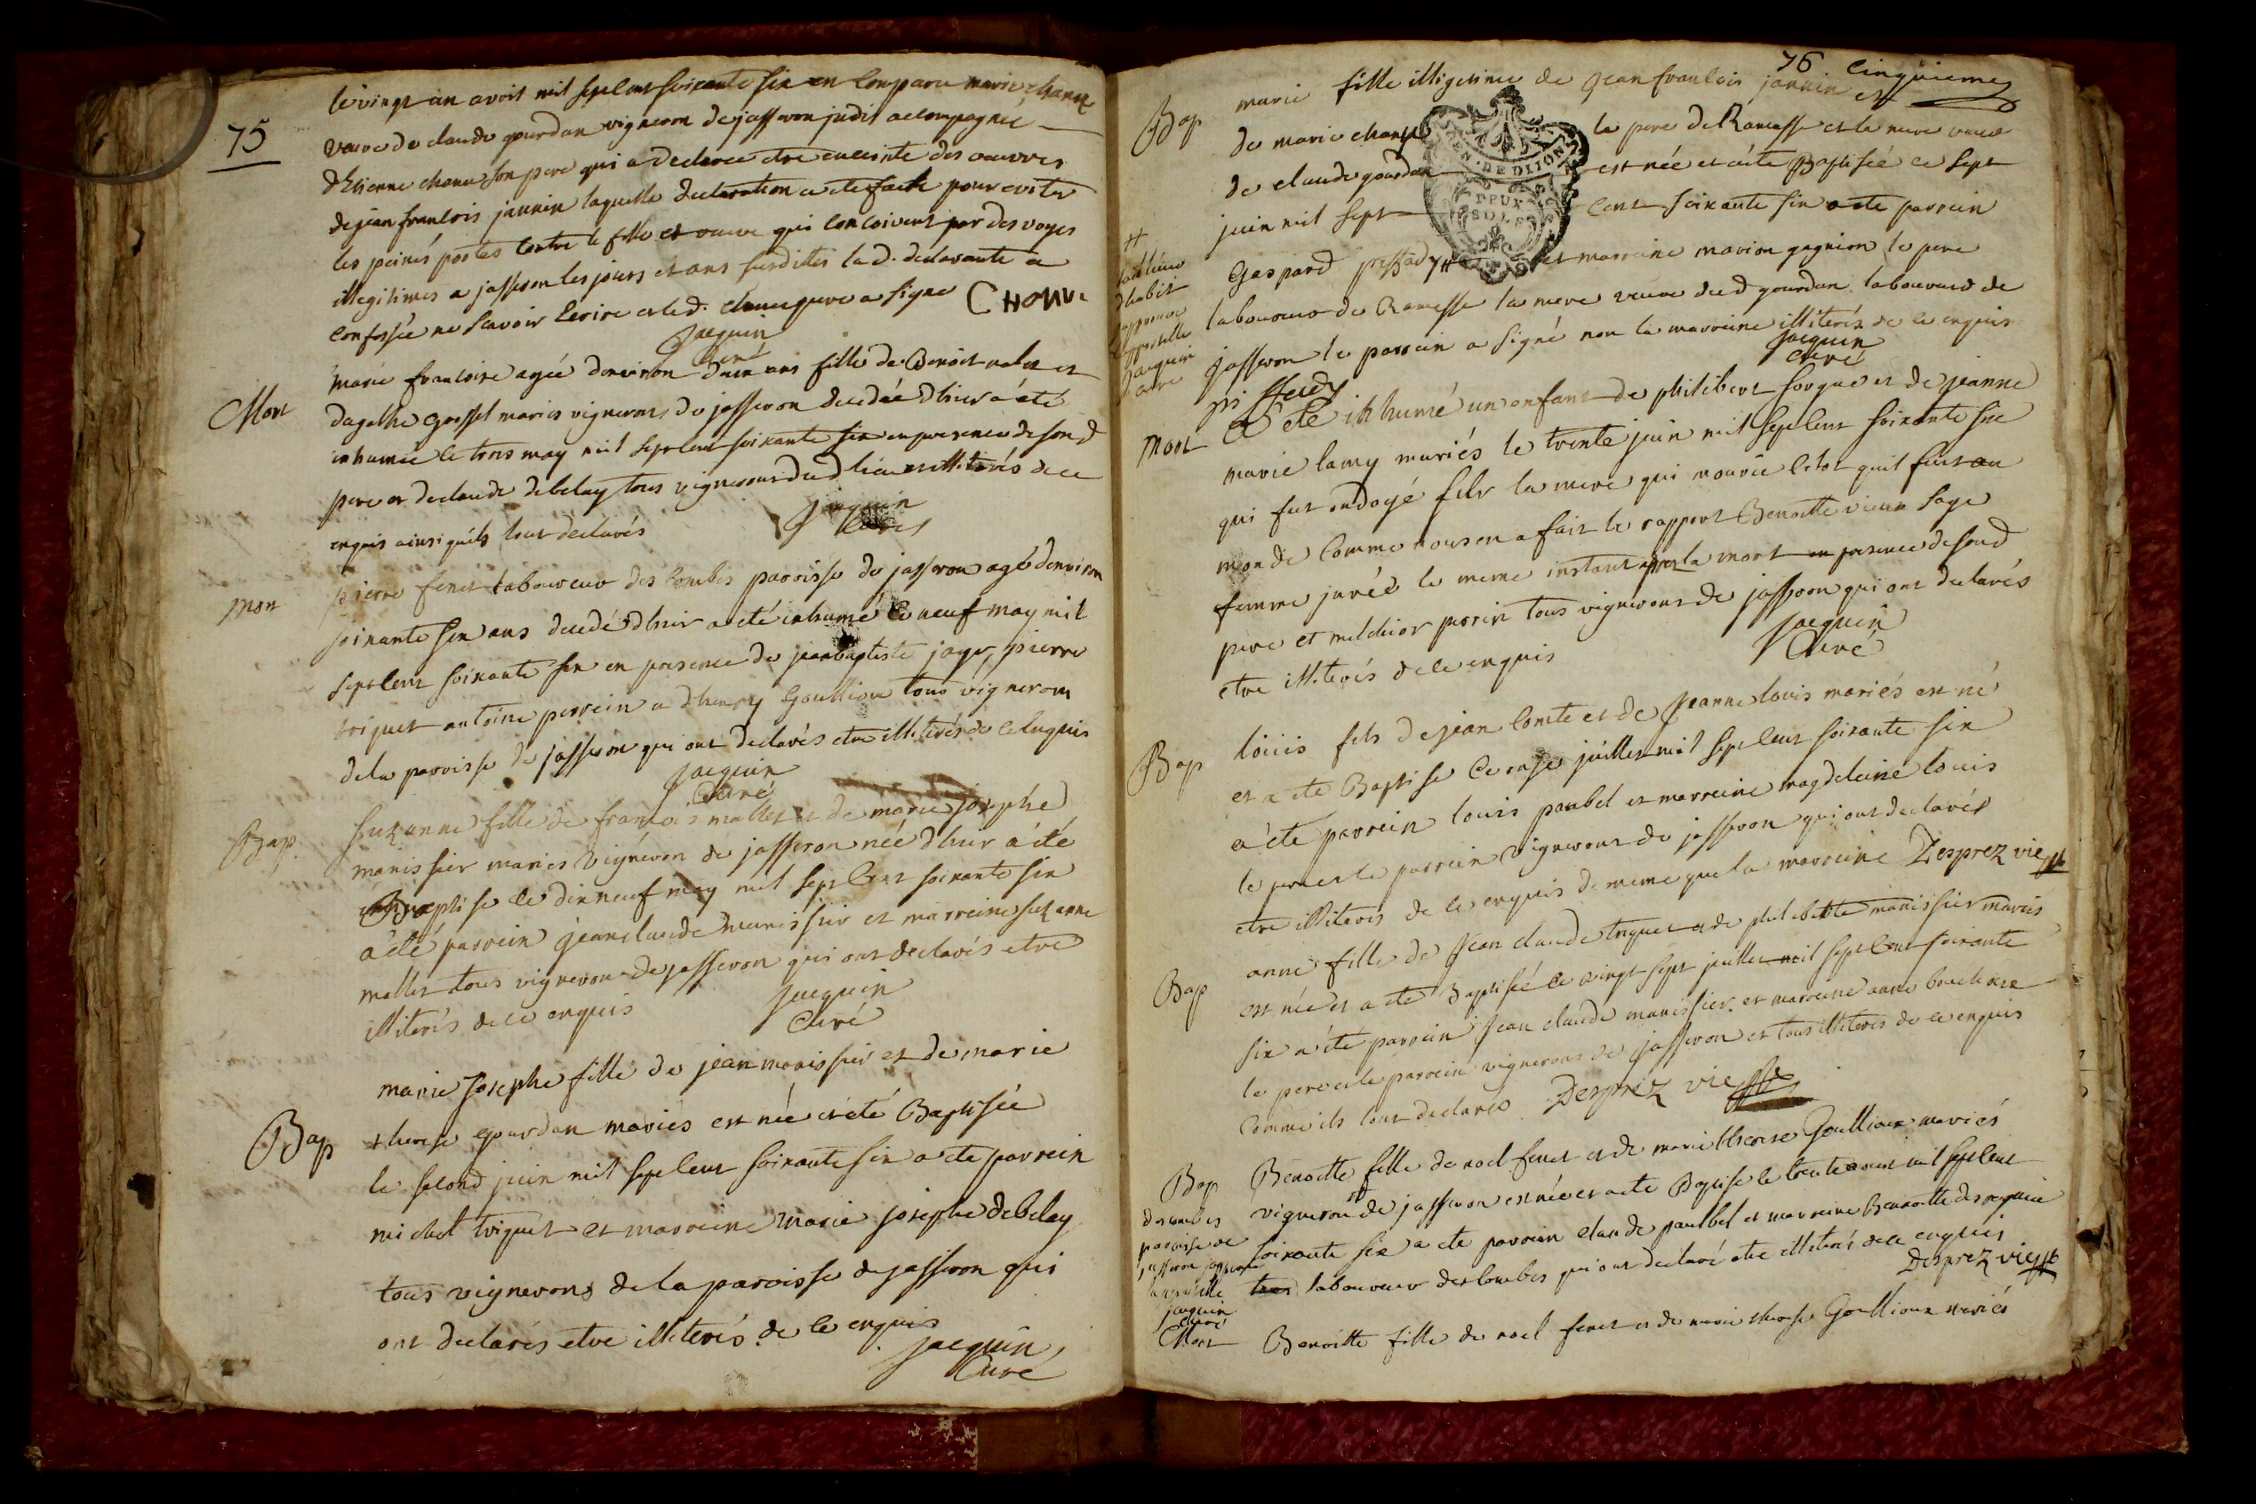 75
le vingt un avril mil sept cent soixante six en comparu marie chanu
veuve de claude gourdan vigneron de jasseron judit accompagnée
d'Etienne chanu son pere qui a declarée etre enceinte des oeuvres
de jean francois jannin laquelle declaration a ete faite pour eviter
les peines portés contre le fille et veuve qui concoivent par des voyes
illegitimes a jasseron les jours et ans susdittes la d. declarante a
confessée ne scavoir ecrire et le d. chanu pere a signé CHONU
Jacquin
curé
Mort
marie francoise agée d'environ deux ans fille de Benoit
d'agathe gosset mariés vignerons de jasseron decedée d'hier a été
inhumée le trois may mil sept cent soixante six en presence de son d
pere et de claude debelay tous vignerons du d lieu et illiterés de ce
enquis ainsi quils l'ont declarés
Jacquin
curé
Mort
pierre feret laboureur des combes paroisse de jasseron agé d'environ
soixante six ans decedé d'hier a été inhumé le neuf may mil
sept cent soixante six en presence de jean baptiste joyr, pierre
triquet antoine perrein a d'henry Goullion tous vignerons
de la paroisse de jasseron qui ont declarés etre illiterés de ce enquis
Jacquin
Curé
Bap
Suzanne fille de francois mallet et de marie josephe
manissier mariés vigneron de jasseron née d'hier a été
Baptise le dix neuf may mil sept cent soixante six
a été parrein jean claude manissier et marreine suzanne
mallet tous vignerons de jasseron qui ont declarés etre
illiterés de ce enquis
Jacquin
Curé
Bap
marie Josephe fille de jean manissier et de marie
therese gourdan mariés est née et été Baptisée
le second juin mil sept cent soixante six a ete parrein
michel triquet et marreine marie josephe debelay
tous vignerons de la paroisse de jasseron qui
ont declarés etre illiterés de ce enquis
Jacquin
Curé
76 Cinquieme
Bap
marie fille illigetime de Jean francois jannin et
de marie chanu le pere de Ramasse et la mere veuve
de claude gourdan est née et été Baptisée le sept
juin mil sept cent soixante six a ete parrein
Gaspard et marreine marion gagnion le pere
laboureur de Ramasse la mere veuve dud gourdan laboureur de
jasseron le parrein a signé non la marreine illiterés de ce enquis
Jacquin
curé
EN. DE DIJON
DEUX
SOLS
Jacquin
curé
Mort
A été inhumé un enfant de philibert et de jeanne
marie lamy mariés le trente juin mil sept cent soixante six
qui fut ondoyé sur la mere qui mourût letot quil fut au
monde comme nous en a fait le rapport Benoitte sage
femme jurée le meme instant apres la mort en presence de son d
pere et melchior perrin tous vignerons de jasseron qui ont declarés
etre illiterés de ce enquis
Jacquin
Curé
Bap
loüis fils de jean comte et de Jeanne louis mariés est né
et a ete Baptise le onze juillet mil sept cent soixante six
a ete parrein louis paubel et marreine magdeleine louis
le pere et le parrein vignerons de jasseron qui ont declarés
etre illiterés de ce enquis de meme que la marreine Desprez vic
Bap
anne fille de Jean claude triquet et de philiberte manissier mariés
est née et a ete Baptisée le vingt sept juillet mil sept cent soixante
six a été parrein Jean claude manissier et marreine anne
le pere et le parrein vignerons de jasseron et tous illiterés de ce enquis
comme ils l'ont declarés Desprez vic
Bap
Benoitte fille de noel feret et de marie therese Goullioux mariés
vigneron de jasseron est née et a ete Baptise le trente aout mil sept cent
soixante six a ete parrein claude paubel et marreine Benoitte
tous laboureur des combes qui ont declaré etre illiterés de ce enquis
Desprez vic
des combes
paroisse de
jasseron
Jacquin
curé
Mort
Benoitte fille de noel feret et de marie therese Goullioux mariés